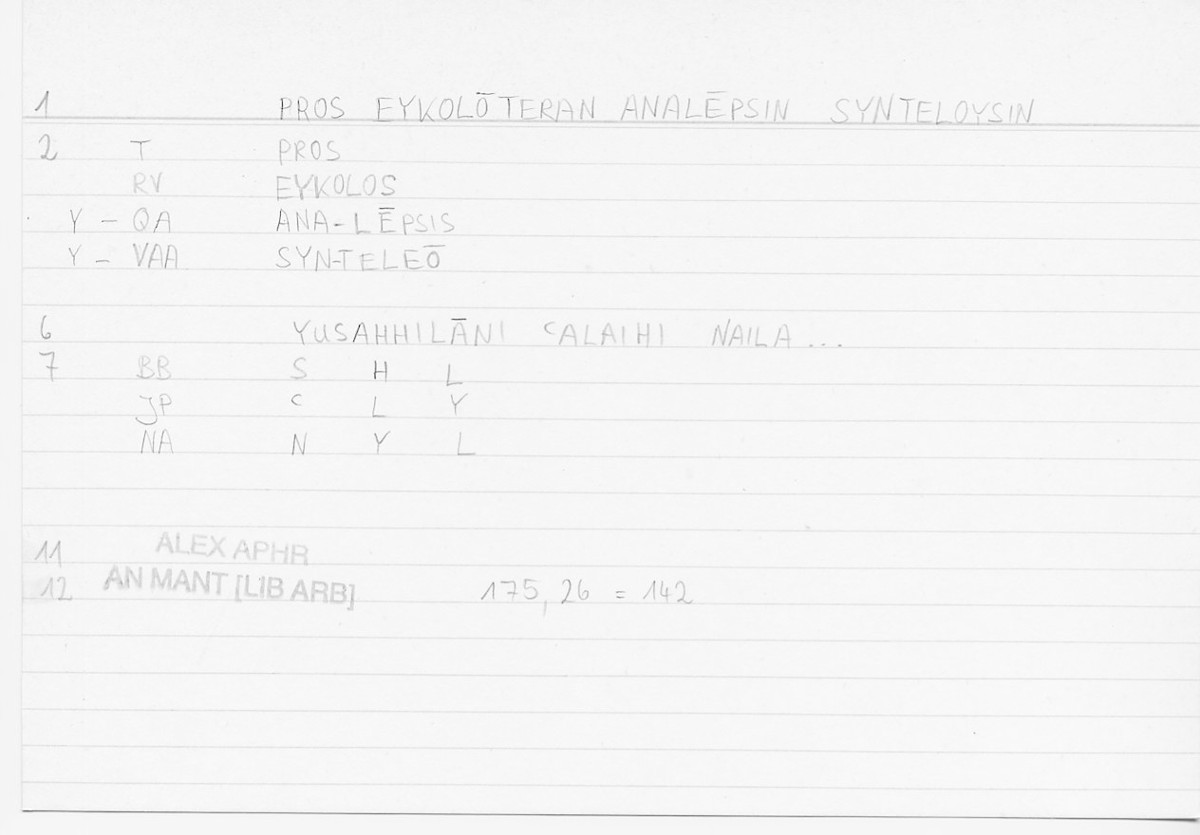 1 PROS EYKOLŌTERAN ANALĒPSIN SYNTELOYSIN
2 T PROS
RV EYKOLOS
Y – QA ANA-LĒPSIS
Y – VAA SYN-TELEŌ
6 YUSAHHILĀNI ʿALAIHI NAILA...
7 BB S H L
JP ʿ L Y
NA N Y L
11 ALEX APHR
12 AN MANT [LIB ARB] 175, 26 = 142